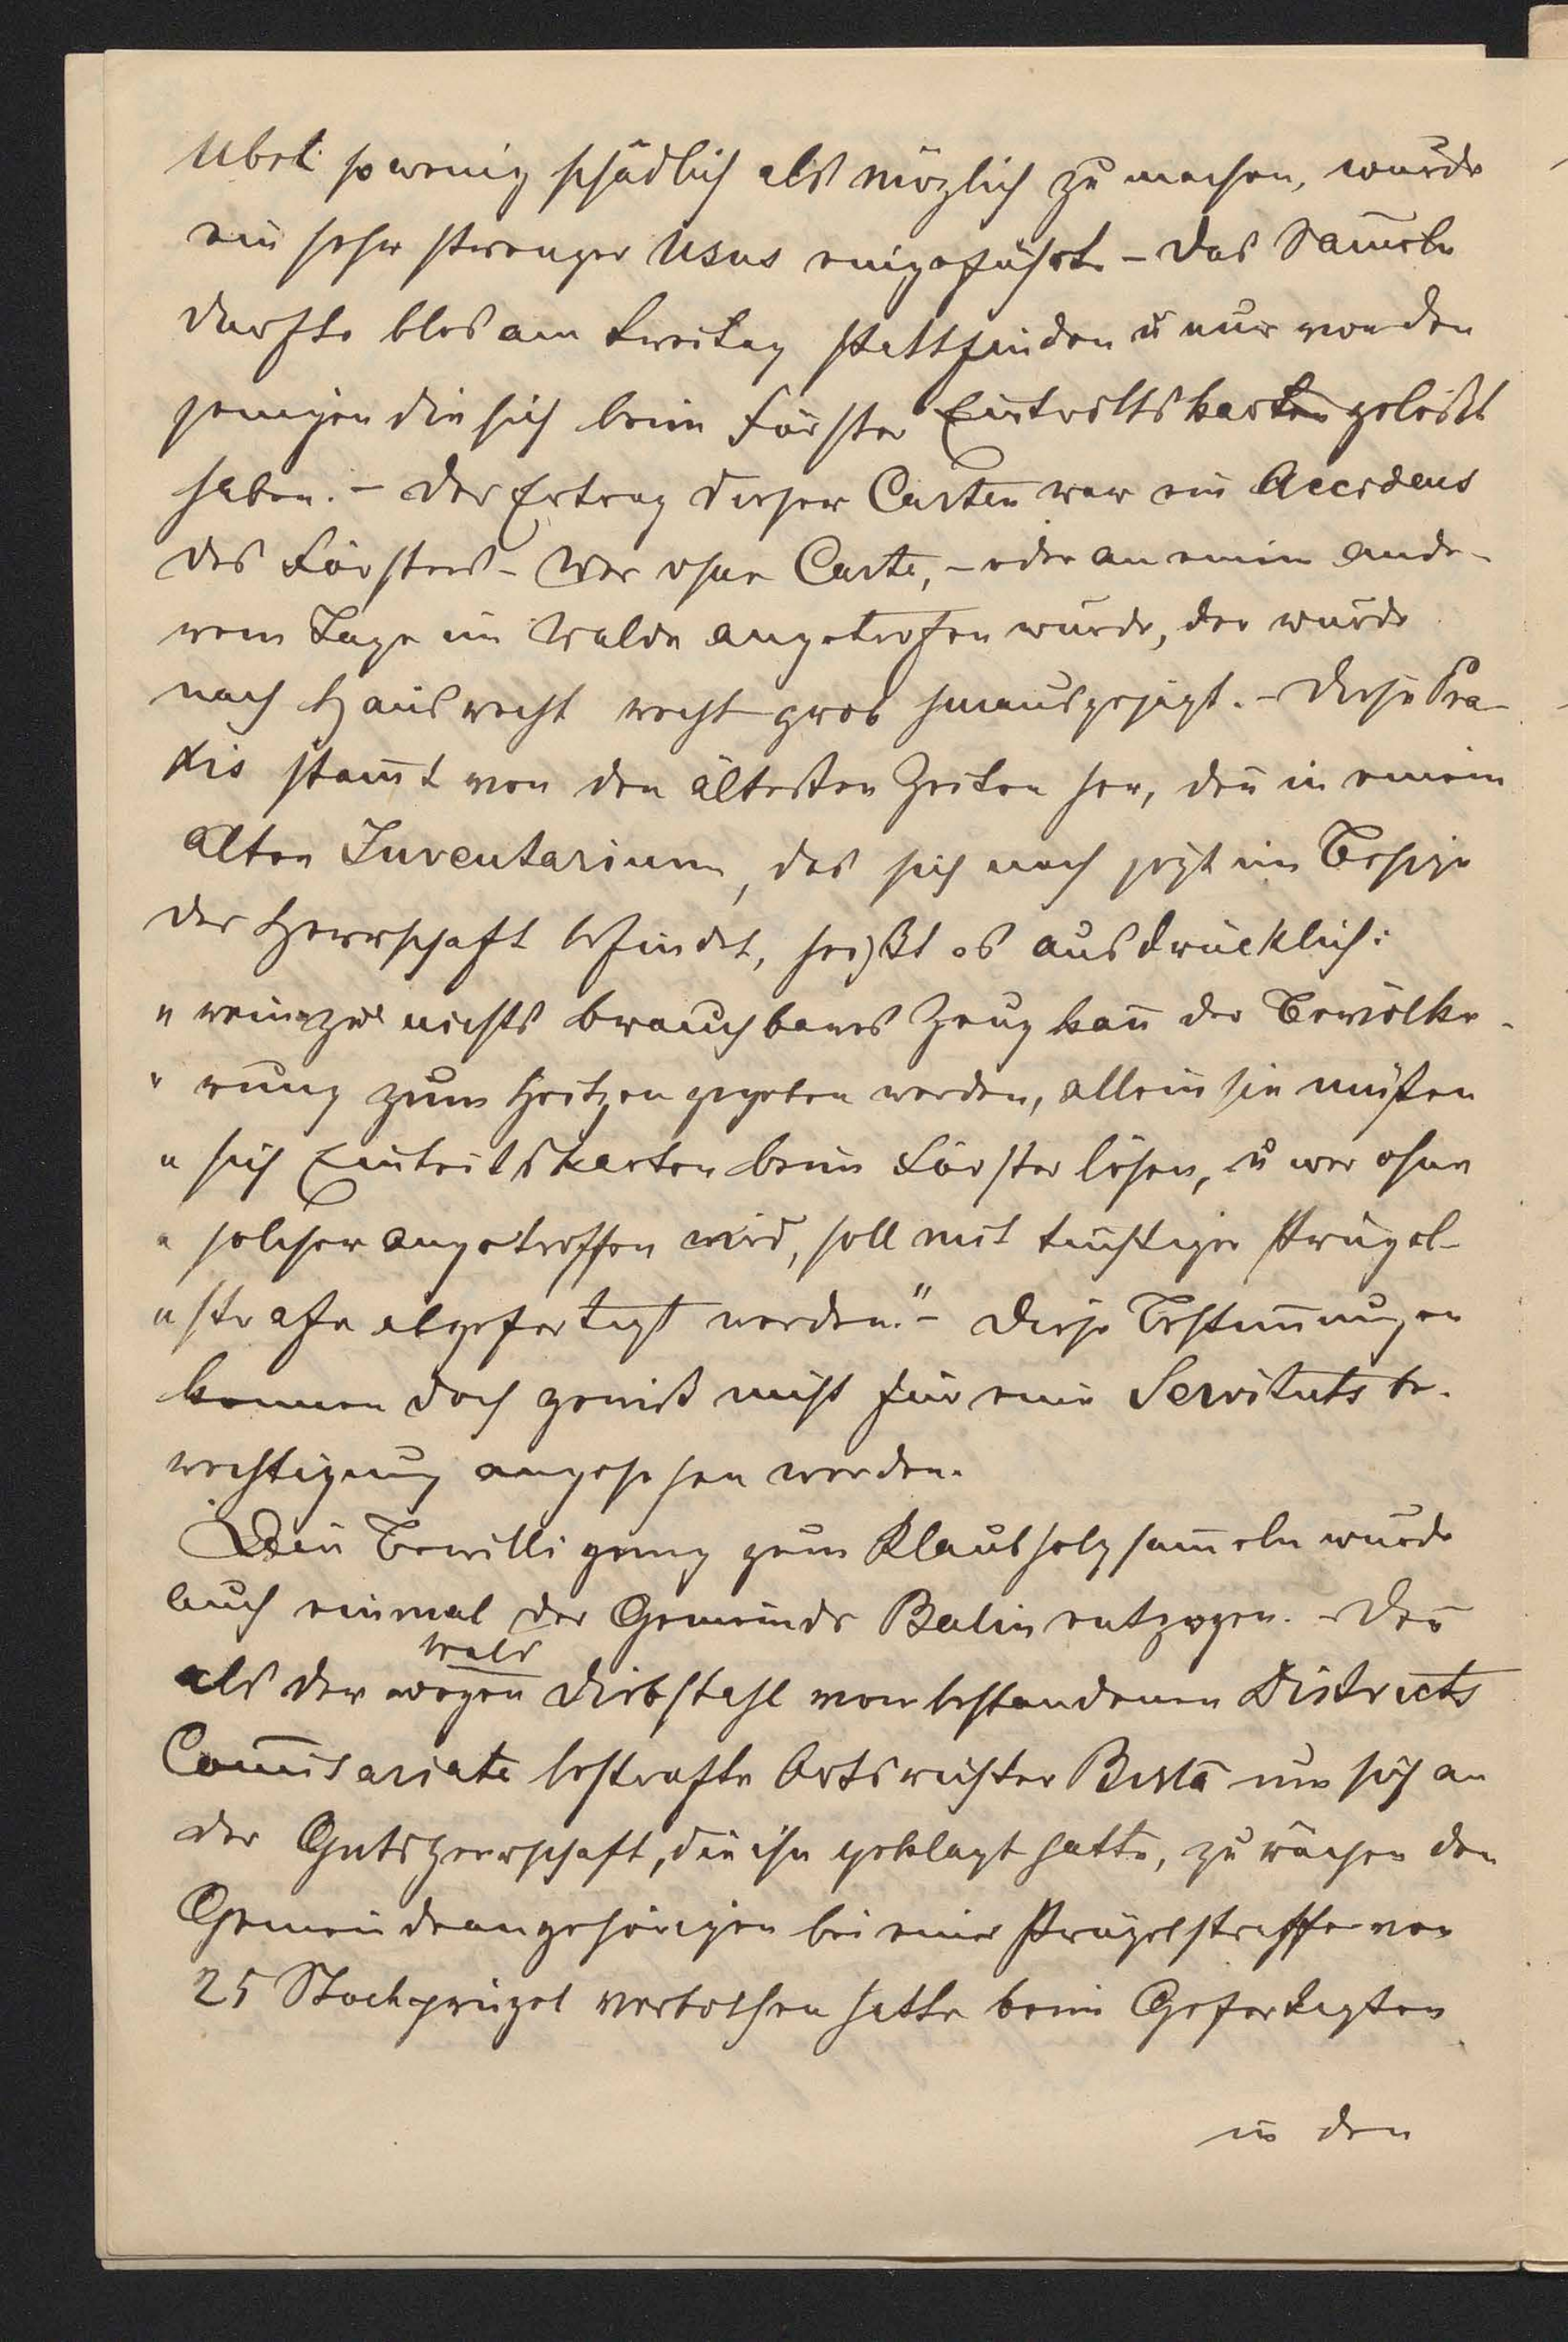 Übel so wenig schädlich als möglich zu machen, wurde
ein sehr strenger Usus eingeführt. – Das Sam̄eln
durfte blos am Freitag stattfinden u nur von den
jenigen die sich beim Förster Eintrittskarten gelößt
haben. – Der Ertrag dieser Carten war ein Accidens
des Försters – Wer ohne Carte, – oder an einem ande-
rem Tage im Walde angetrofen wurde, der wurde
nach Hausrecht recht grob hinausgejagt. – Diese Pra-
xis stam̄t von den ältesten Zeiten her, den̄ in einem
alten Inventarium, das sich noch jezt im Besize
der Herrschaft befindet, heißt es ausdrücklich:
" nichts brauchbares Zeug kan̄ der Bevölke-
" rung zum Heitzen gegeben werden, allein sie müßen
" sich Eintritskarten beim Förster lösen, u wer ohne
" solcher angetroffen wird, soll mit tüchtiger Prügel-
" strafe abgefertigt werden." – Diese Bestim̄ungen
konnen doch gewiß nicht für eine Servitutsbe-
rechtigung angesehen werden.
Die Bewilligung zum Klaubholzsam̄eln wurde
auch einmal der Gemeinde Balin entzogen. – Den̄
Wald
als der wegen Diebstahl vom bestandenen Districts
Com̄isariate bestrafte Ortsrichter um sich an
der Gutsherrschaft, die ihn geklagt hatte, zu rächen den
Gemeindeangehörigen bei einer Prügelstraffe von
25 Stockprügel verbothen hatte beim Gefertigten
in den